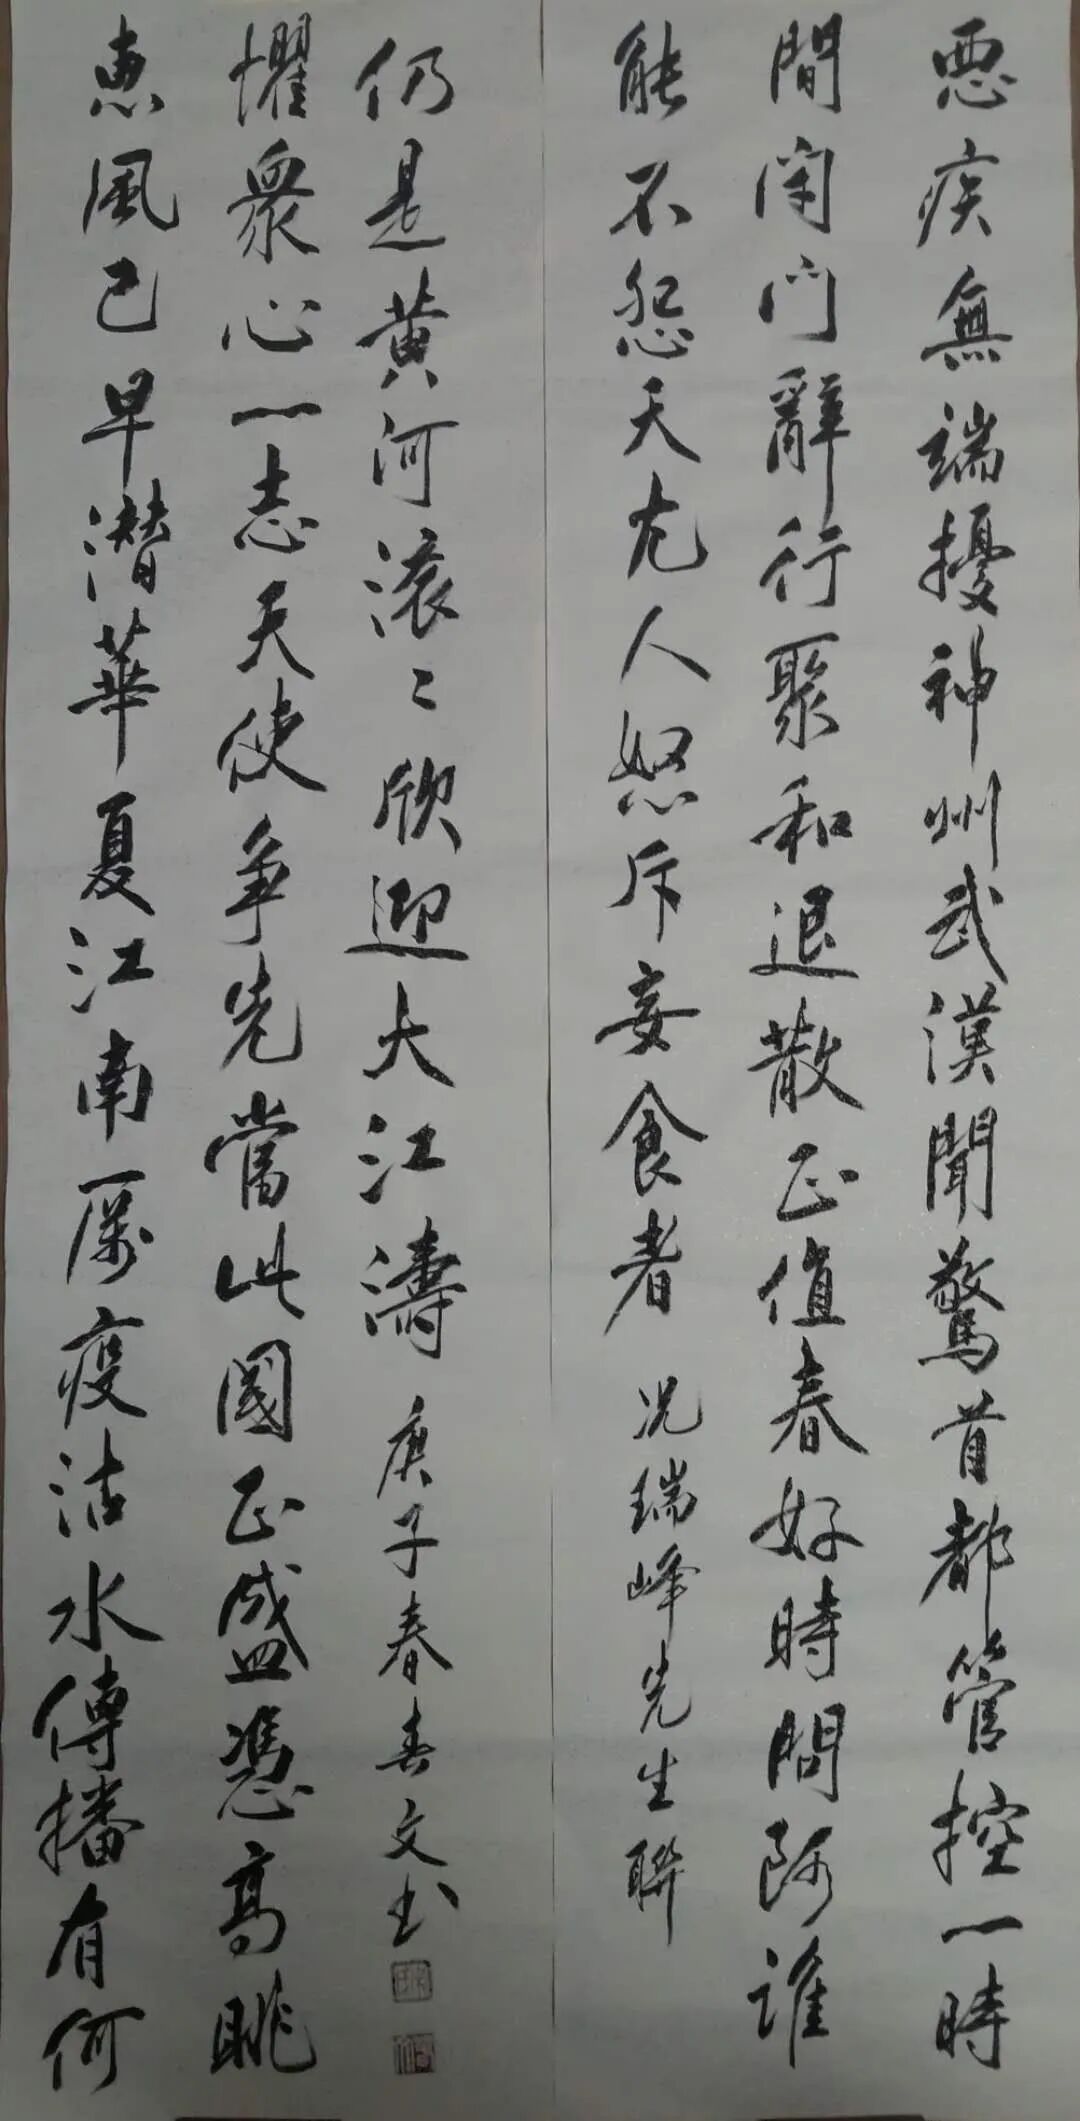 悪疾無端擾神州武漢聞驚首都管控一時
間闭門辭行聚和退散正值春好時問阿誰
能不怨天尤人怒斥妄食者
况瑞峰先生聯
恵風已早潛華夏江南厲疫沽水傳播有何
懼衆心一志天使争先當此國正盛憑高眺
仍是黄河滚〻欣迎大江濤
庚子春文书